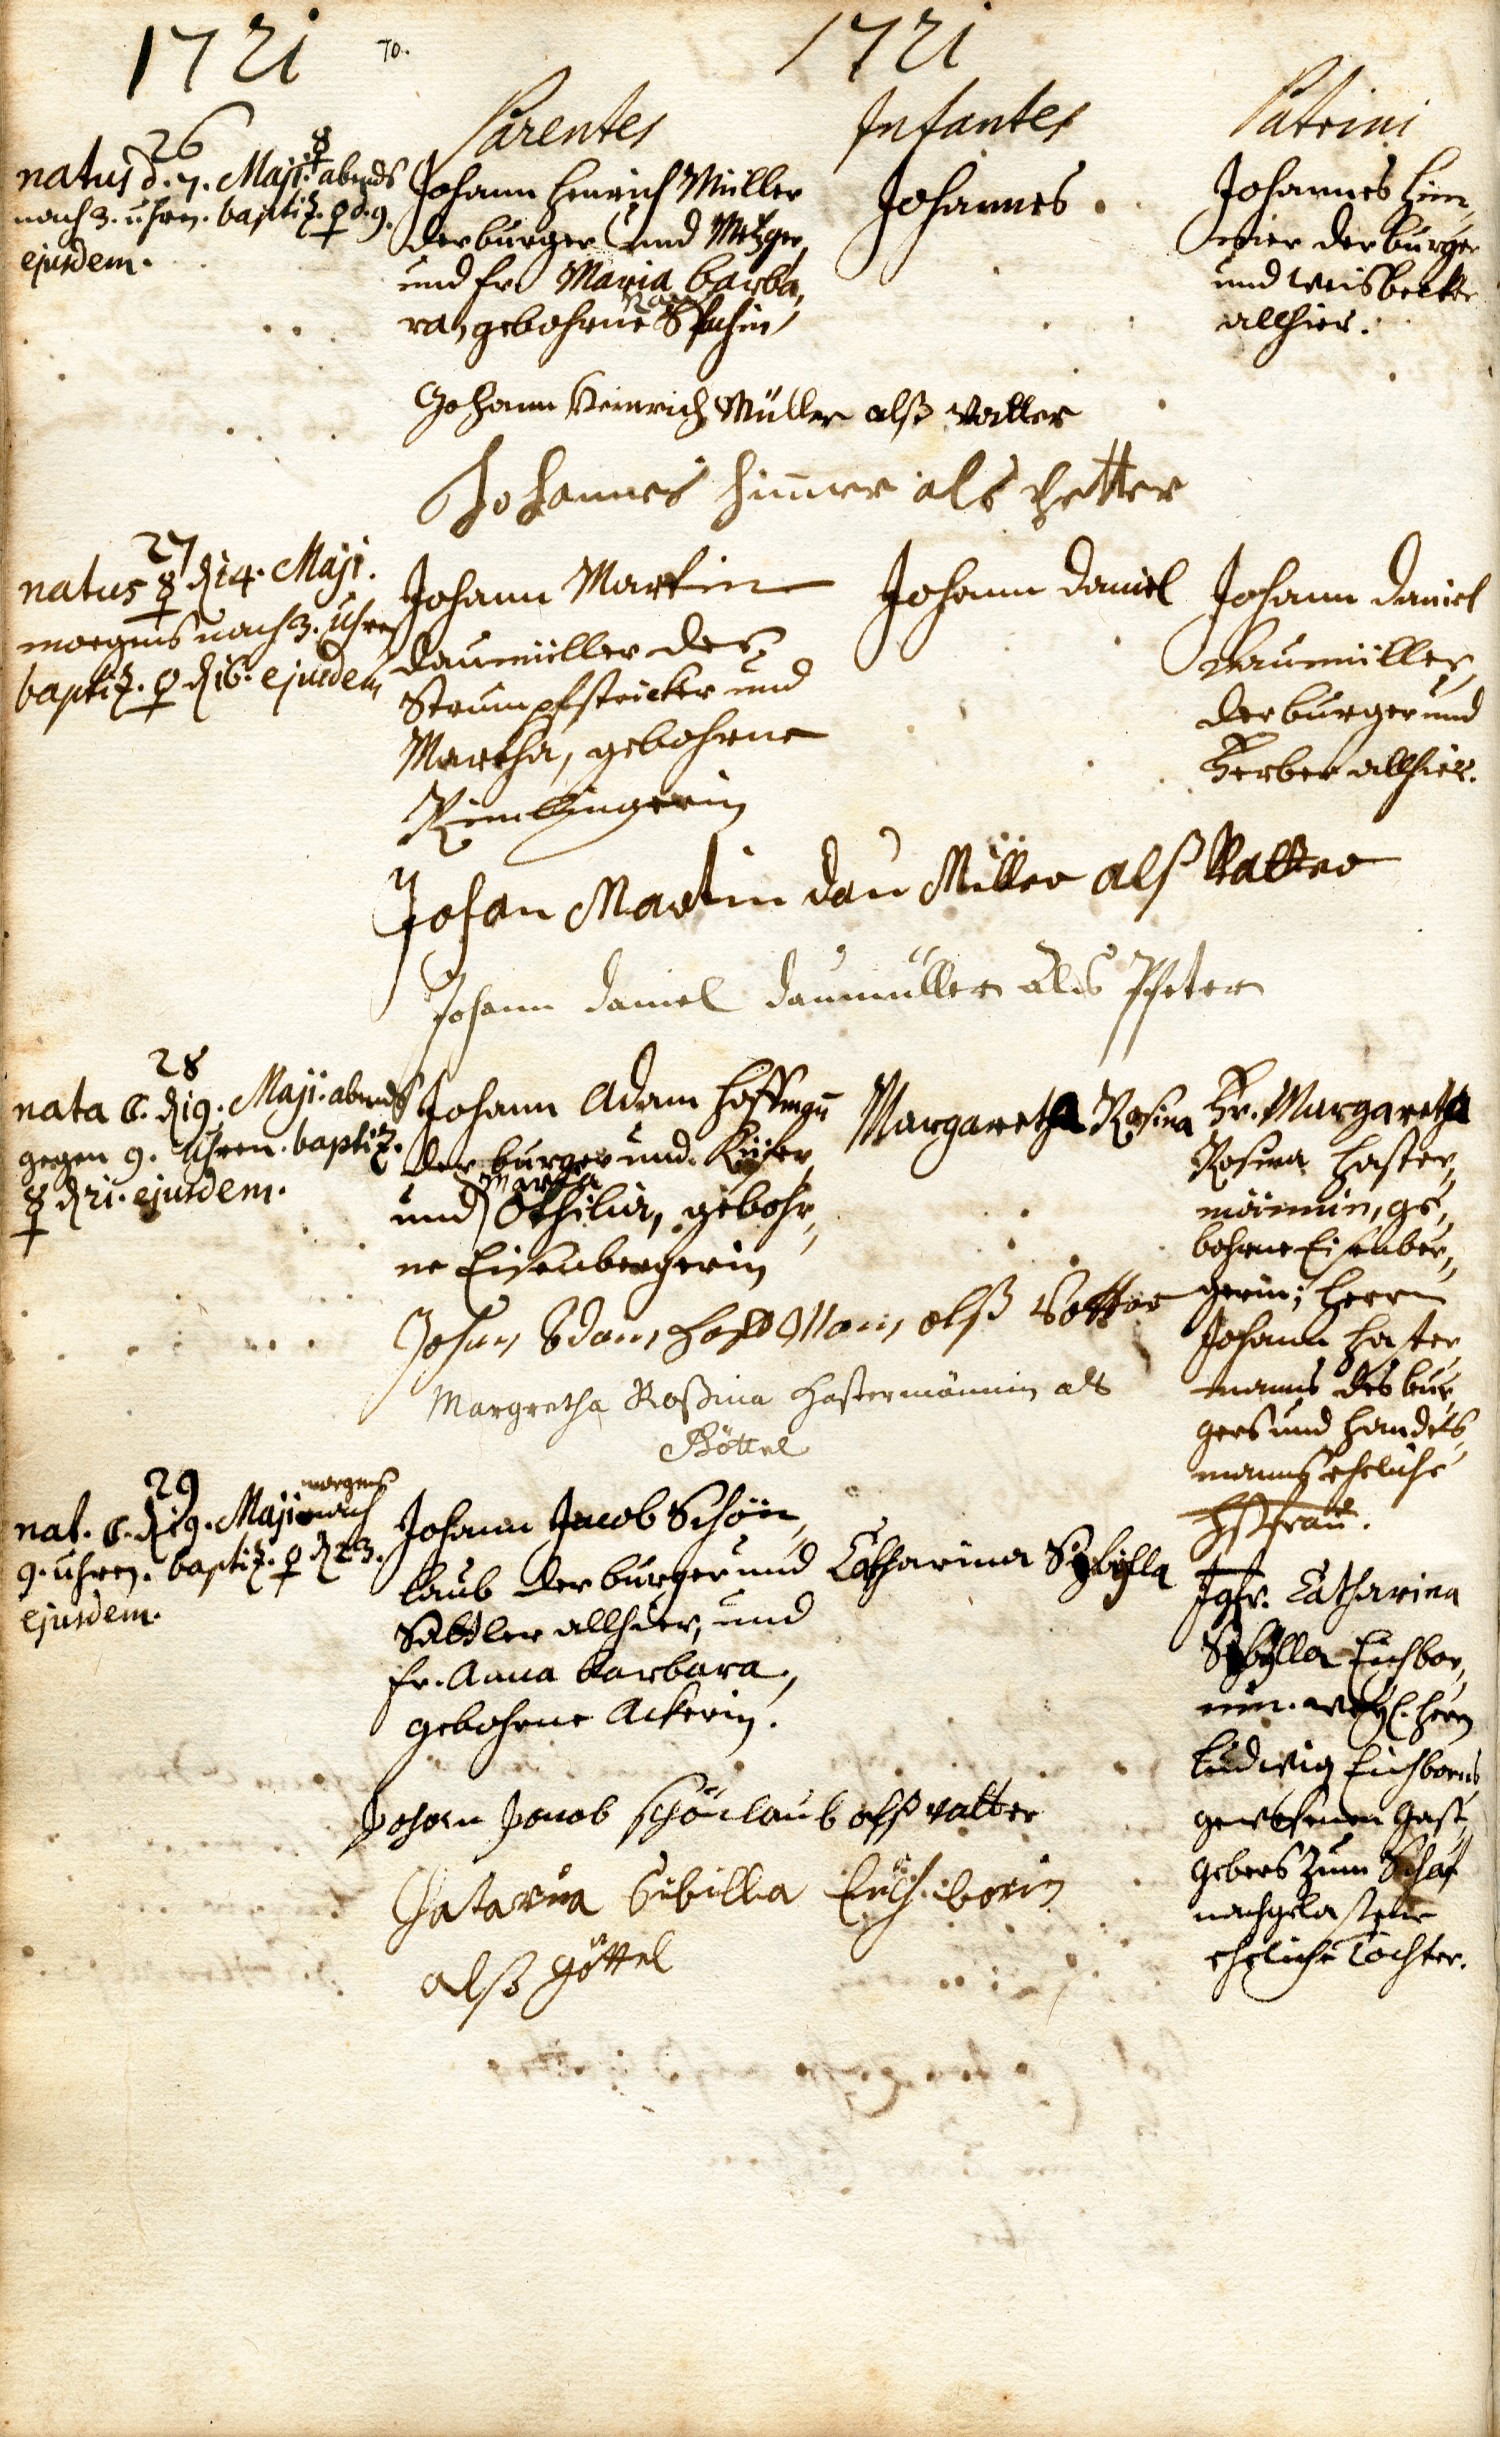 1721 70. 1721
Parentes Infantes Patrini
26
natus d. 7. Maji. ☿ abends
nach 3. uhren. baptiz. ♀ d. 9.
ejusdem.
Johann Henrich Müller
der burger und Metzger,
und fr. Maria barba,
ra, gebohrne
Johannes.
Johannes Him,
mer der burger
und weisbecker
allhier.
Johann Heinrich Müller alß Vatter
Johannes Himer als Petter
27
natus ☿ d 14. Maji.
morgens nach 3. Uhren
baptiz. ♀ d 16. ejusdem
Johann Martin
Daumüller der
Strumpfstricker und
Martha, gebohrne
Rimlingerin
Johann Daniel
Johann Daniel
Daumüller,
der burger und
Gerber allhier.
Johan Martin dau Müller alß Vatter
Johann Daniel Daumüller als Pfeter
28
nata ☾. d 19. Maji. abends
gegen 9. Uhren. baptiz.
☿ d 21. ejusdem.
Johann Adam Hoffman
der burger und Küfer
Maria
und Othilia, gebohr,
ne Eisenbergerin
Margaretha Rosina
Fr. Margaretha
Rosina Haster,
männin, ge,
bohrne Eisenber,
gerin; Herrn
Johann Haster,
manns des bur,
gers und Handels,
manns eheliche
Hßfrau.
Johan Adam Hoffman alß Vatter
Margretha Roßina Hastermännin als
Göttel
29
nat. ☾. d 19. Maji morgens nach
9. uhren. baptiz. ♀ d 23.
ejusdem.
Johann Jacob Schön,
laub der burger und
Sattler allhier, und
fr. Anna barbara,
gebohrne Ackerin.
Catharina Sybylla
Jgfr. Catharina
Sybylla Eichbor,
nin. weyl. Herrn
Ludwig Eichborns
gewesenen Gast,
gebers zum Schaf
nachgelaßene
eheliche Tochter.
Johan Jacob schönlaub alß vatter
Chatarina Sibilla Eichborin
alß göttel